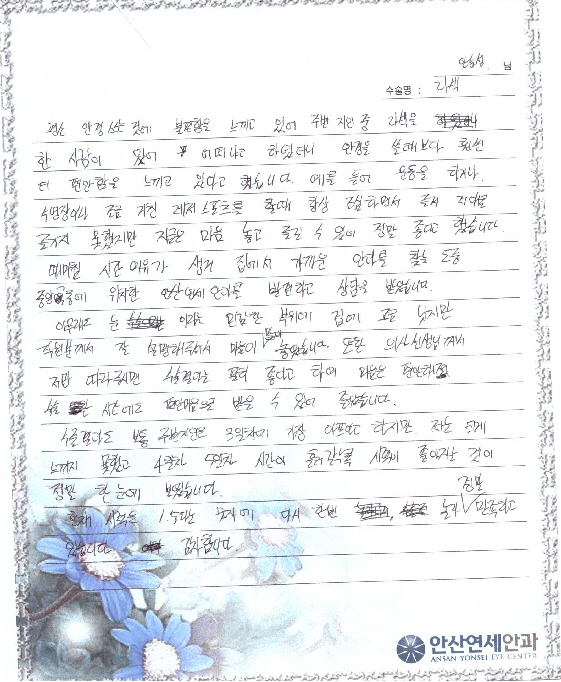 안승성 님
수술명 : 라색
평소 안경 쓰는 것에 불편함을 느끼고 있어 주변 지인 중 라색을
한 사람이 있어 어떠냐고 하였더니 안경을 쓸때보다 훨씬
더 편안함을 느끼고 있다고 했습니다. 예를 들어 운동을 하거나
수영장이나 조금 거친 레저스포츠를 할때 항상 조심하면서 즐겨 제대로
즐기지 못했지만 지금은 마음 놓고 즐길 수 있어 정말 좋다고 했습니다.
때마침 시간 여유가 생겨 집에서 가까운 안과를 찾는 도중
중앙동에 위치한 안산연세안과를 발견하고 상담을 받았습니다.
아무래도 눈 이라는 민감한 부위에 겁이 조금 났지만
직원분께서 잘 설명해주셔서 마음이 놓였습니다. 또한 의사선생님께서
지만 따라주시면 수술결과는 좋다고 하여 마음은 편안해져
수술 시간에도 편안마음으로 받을 수 있어 좋았습니다.
수술결과도 보통 주변지인은 3일차가 가장 아프다고 하지만 저는 크게
느끼지 못했고 4일차 5일차 시간이 흘러갈수록 시력이 좋아지는 것이
정말 한 눈에 보였습니다.
현재 시력은 1.5라는 수치에 다시 한번 놀라 정말 만족하고
있습니다. 감사합니다.
안산연세안과
ANSAN YONSEI EYE CENTER